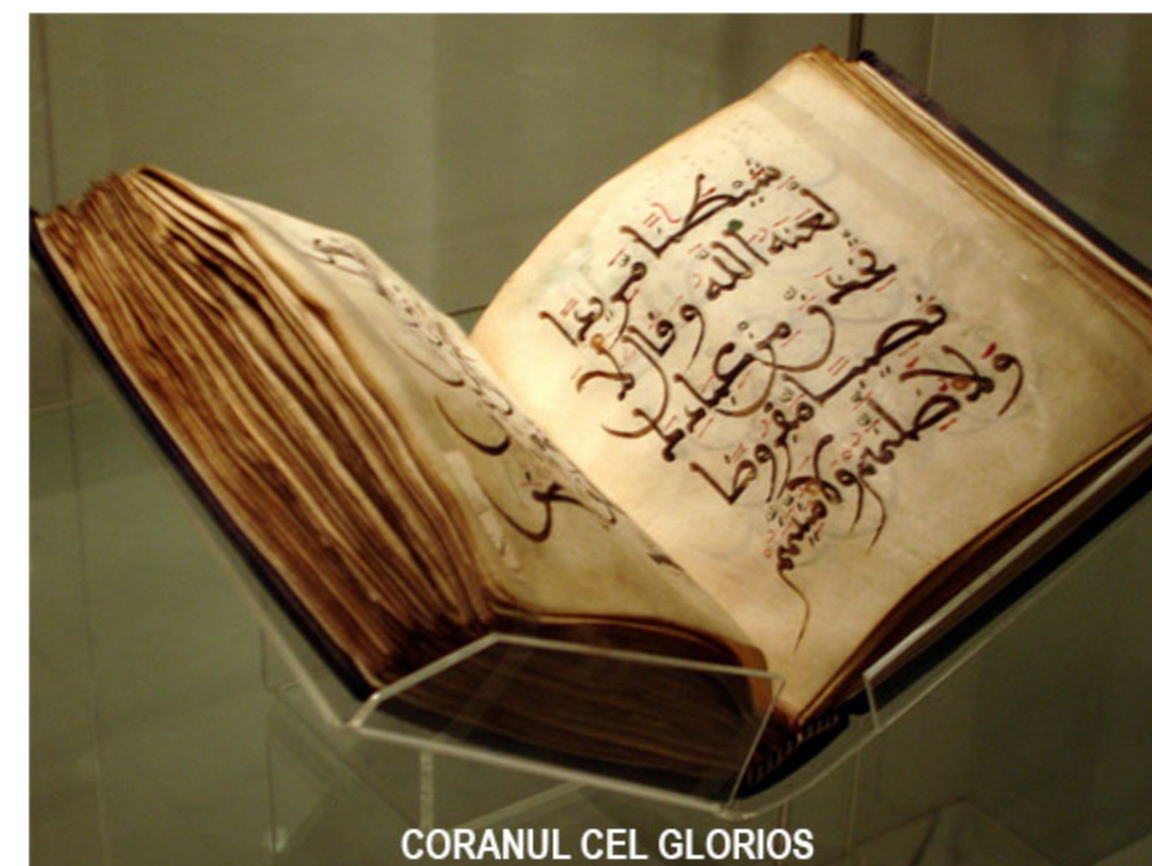 شيطنا مريدا
لعنه الله وقال لا
تخذن من عبادك
نصيبا مفروضا
ولأضلنهم ولأمنينهم
CORANUL CEL GLORIOS